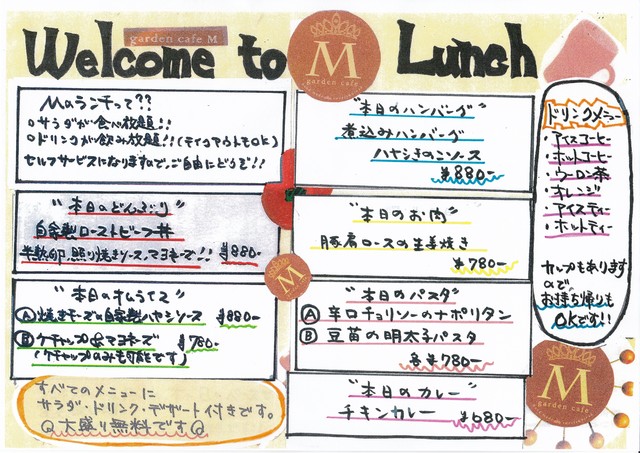 Welcome to Lunch
garden cafe M
M
garden cafe
Mのランチって??
○サラダが食べ放題!!
○ドリンクが飲み放題!!(テイクアウトもOK)
セルフサービスになりますので、ご自由にどうぞ!!
"本日のどんぶり"
自家製ローストビーフ丼
半熟卵、照り焼きソース、マヨネーズ!! ¥880-
"本日のオムライス"
Ⓐ焼きチーズの自家製ハヤシソース ¥880-
Ⓑケチャップ&マヨネーズ ¥780-
(ケチャップのみも可能です)
すべてのメニューに
サラダ・ドリンク・デザート付きです。
大盛り無料です
"本日のハンバーグ"
煮込みハンバーグ
ハヤシきのこソース
¥880-
"本日のお肉"
豚肩ロースの生姜焼き
¥780-
"本日のパスタ"
Ⓐ辛口チョリソーのナポリタン
Ⓑ豆苗の明太子パスタ
各¥780-
"本日のカレー"
チキンカレー ¥680-
ドリンクメニュー
・アイスコーヒー
・ホットコーヒー
・ウーロン茶
・オレンジ
・アイスティー
・ホットティー
カップもあります
ので
お持ち帰りも
OKです!!
M
M
garden cafe